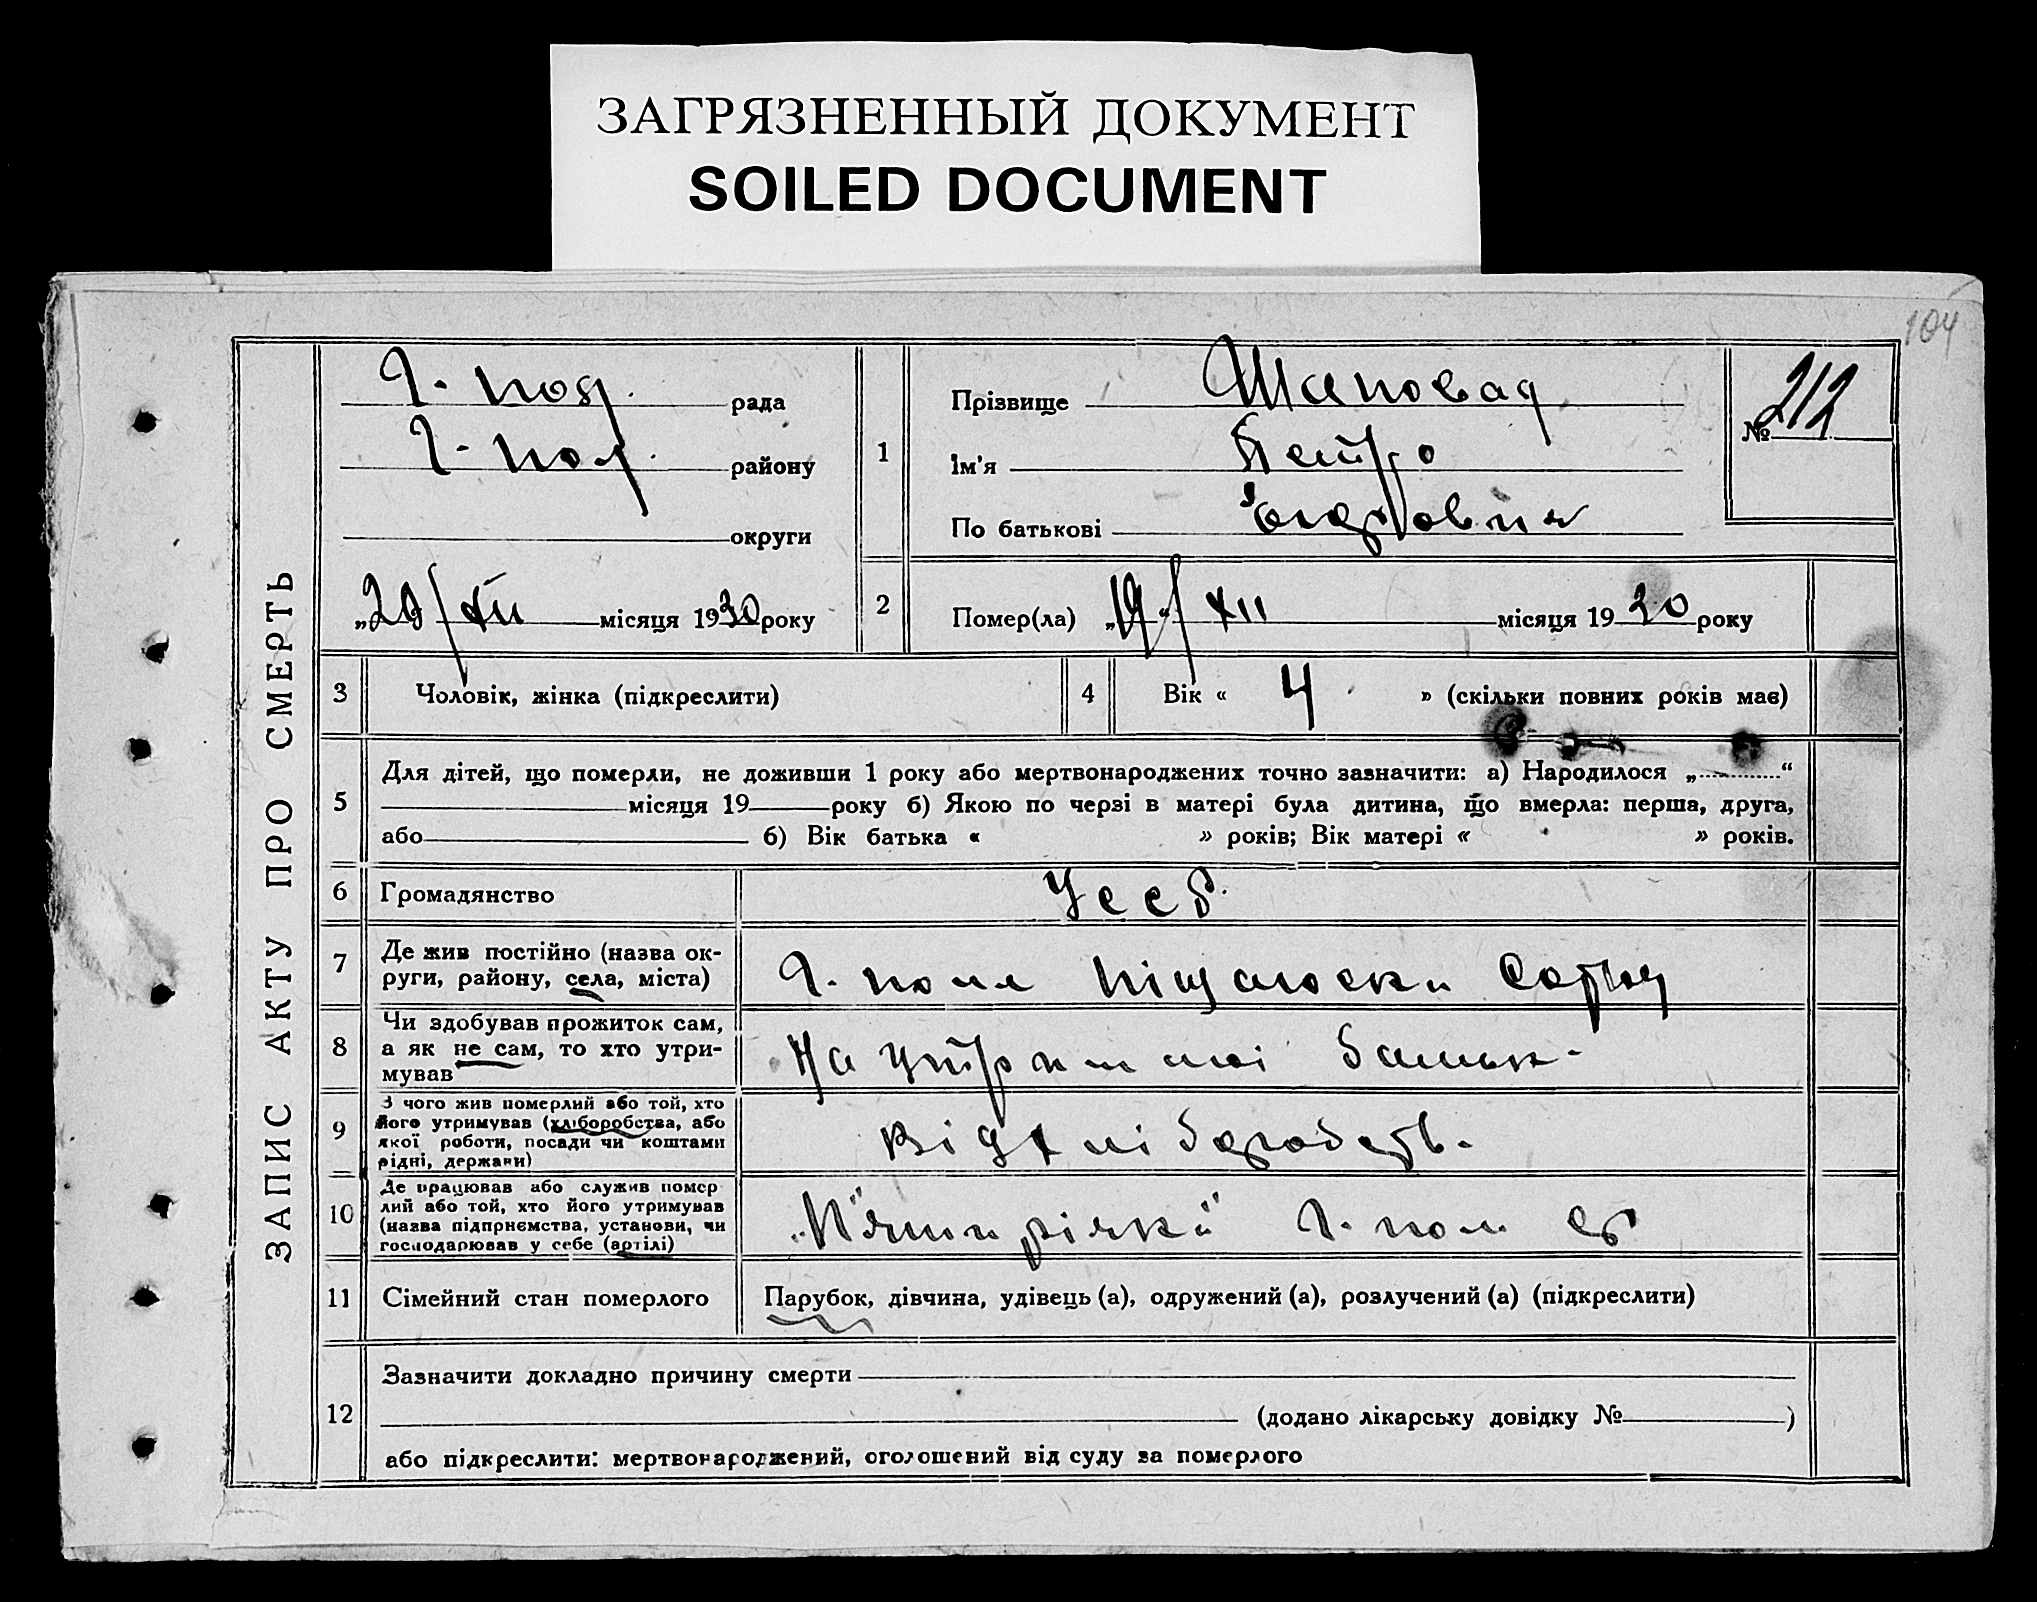 ЗАГРЯЗНЕННЫЙ ДОКУМЕНТ
SOILED DOCUMENT
104
ЗАПИС АКТУ ПРО СМЕРТЬ
рада
району
округи
„20/XII місяця 1930 року
1
Прізвище Шаповал
Ім'я Петро
По батькові
№ 212
2
Помер(ла) „19“/XII місяця 1930 року
3 Чоловік, жінка (підкреслити)
4 Вік « 4 » (скільки повних років має)
5
Для дітей, що померли, не доживши 1 року або мертвонароджених точно зазначити: а) Народилося „............“
місяця 19 року б) Якою по черзі в матері була дитина, що вмерла: перша, друга,
або б) Вік батька « » років; Вік матері « » років.
6 Громадянство УССР
7
Де жив постійно (назва ок-
руги, району, села, міста)
Г. поле
8
Чи здобував прожиток сам,
а як не сам, то хто утри-
мував
На утриманні батьк-
9
З чого жив померлий або той, хто
його утримував (хліборобства, або
якої роботи, посади чи коштами
рідні, держави)
Від хлібороб
10
Де працював або служив помер
лий або той, хто його утримував
(назва підприємства, установи, чи
господарював у себе (артілі)
Г. пол
11 Сімейний стан померлого
Парубок, дівчина, удівець (а), одружений (а), розлучений (а) (підкреслити)
12
Зазначити докладно причину смерти
(додано лікарську довідку № )
або підкреслити: мертвонароджений, оголошений від суду за померлого